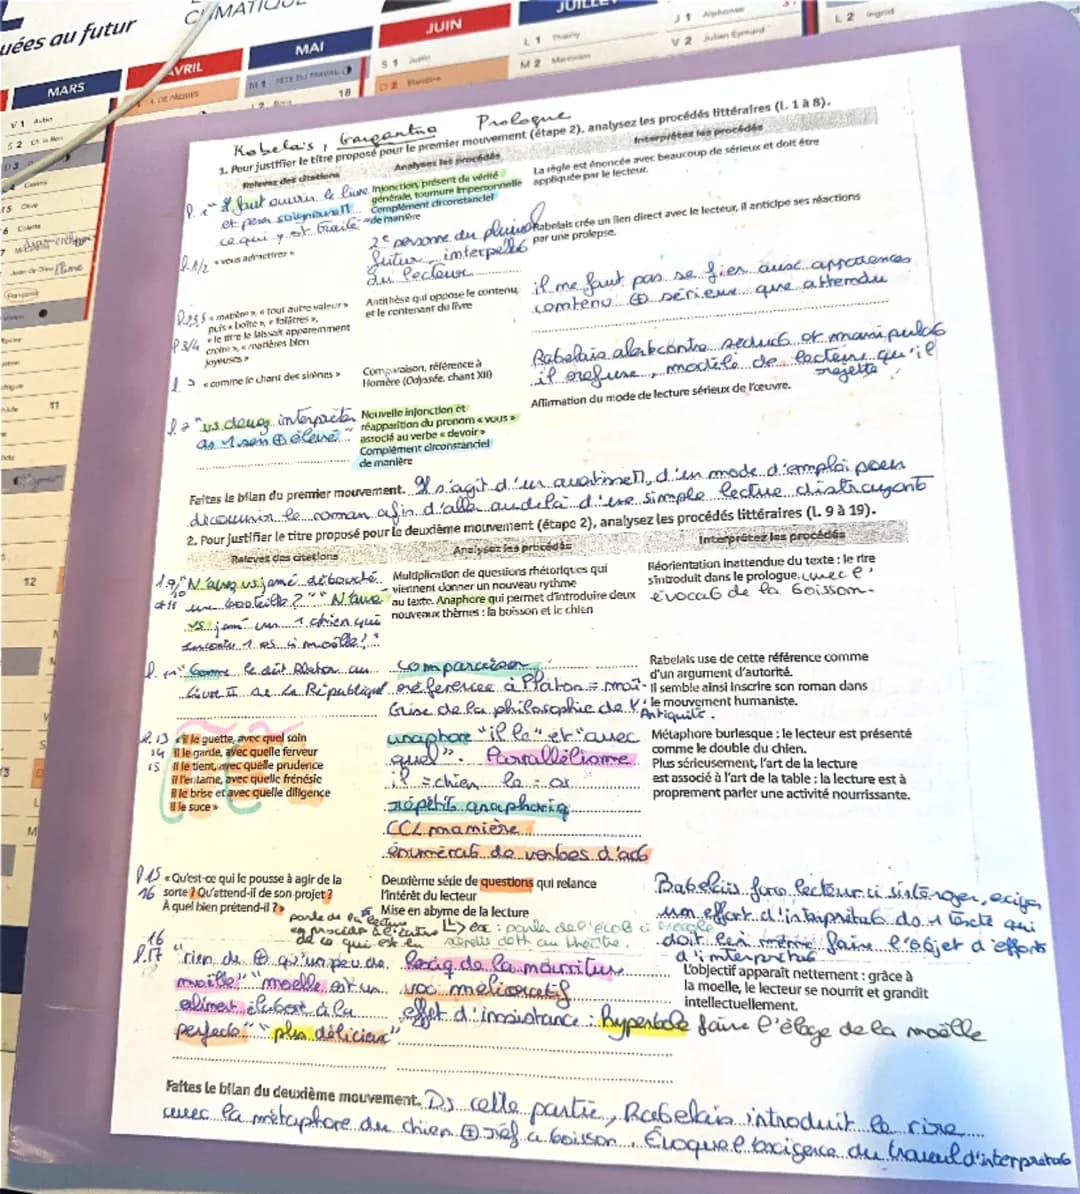 uées au futur
CLIMATIQUE
MARS
AVRIL
MAI
JUIN
JUILLET
V 1
S 2
M 1 FÊTE DU TRAVAIL
S 1
D 2
L 1 Thierry
M 2
J 1 Alphonse
V 2
L 2 Ingrid
18
11
12
Rabelais, Gargantua Prologue
1. Pour justifier le titre proposé pour le premier mouvement (étape 2), analysez les procédés littéraires (l. 1 à 8).
Relevez des citations
Analysez les procédés
Interprétez les procédés
l. 1 "il faut ouvrir le livre
et peser soigneusem^t
ce qui y est traité"
Injonction, présent de vérité
générale, tournure impersonnelle
Complément circonstanciel
de manière
La règle est énoncée avec beaucoup de sérieux et doit être
appliquée par le lecteur.
l. 1/2 « vous admettrez »
2e personne du pluriel
futur, interpell°
du lecteur
Rabelais crée un lien direct avec le lecteur, il anticipe ses réactions
par une prolepse.
« matière », « tout autre valeur »
puis « boîte », « folâtres »,
« le titre le laissait apparemment
croire », « matières bien
joyeuses »
l 3/4
Antithèse qui oppose le contenu
et le contenant du livre
il ne faut pas se fier aux apparences
contenu ⊕ sérieux que attendu
« comme le chant des sirènes »
Comparaison, référence à
Homère (Odyssée, chant XII)
Rabelais alerte contre séduct° et manipulat°
il refuse, modèle de lecteurs qu'il
rejette
"vs devez interpréter
ds 1 sens ⊕ élevé"
Nouvelle injonction et
réapparition du pronom « vous »
associé au verbe « devoir »
Complément circonstanciel
de manière
Affirmation du mode de lecture sérieux de l'œuvre.
Faites le bilan du premier mouvement. Il s'agit d'un avertissem^t, d'un mode d'emploi pour
découvrir le roman afin d'aller au delà d'une simple lecture distrayante
2. Pour justifier le titre proposé pour le deuxième mouvement (étape 2), analysez les procédés littéraires (l. 9 à 19).
Relevez des citations
Analysez les procédés
Interprétez les procédés
l. 9, "N'avez vs jamé débouché
une bouteille ?" "N'avez
vs jam^s vu 1 chien qui
rencontre 1 os à moelle ?"
Multiplication de questions rhétoriques qui
viennent donner un nouveau rythme
au texte. Anaphore qui permet d'introduire deux
nouveaux thèmes : la boisson et le chien
Réorientation inattendue du texte : le rire
s'introduit dans le prologue, avec l'
évocat° de la boisson.
l. 11 "Comme le dit Platon au
livre II de La République"
comparaison,
références à Platon = maî-
trise de la philosophie de l'
Antiquité.
Rabelais use de cette référence comme
d'un argument d'autorité.
Il semble ainsi inscrire son roman dans
le mouvement humaniste.
l. 13
14
15
« Il le guette, avec quel soin
Il le garde, avec quelle ferveur
Il le tient, avec quelle prudence
Il l'entame, avec quelle frénésie
Il le brise et avec quelle diligence
Il le suce »
anaphore "il le" et "avec
quel". Parallélisme
il = chien le = os
répétit° anaphoriq
CCL manière
énumérat° de verbes d'act°
Métaphore burlesque : le lecteur est présenté
comme le double du chien.
Plus sérieusement, l'art de la lecture
est associé à l'art de la table : la lecture est à
proprement parler une activité nourrissante.
l 15
16
« Qu'est-ce qui le pousse à agir de la
sorte ? Qu'attend-il de son projet ?
À quel bien prétend-il ? »
Deuxième série de questions qui relance
l'intérêt du lecteur
Mise en abyme de la lecture
Rabelais force lecteur à s'interroger, exiger
un effort d'interprétat° du texte qui
doit lui même faire l'objet d'efforts
d'interprétat°
16
l. 17 "rien de ⊕ qu'un peu de
moelle" "moelle est un
aliment élaboré à la
perfect°" "plus délicieux"
lexiq de la nourriture
voc mélioratif
effet d'insistance : hyperbole faire l'éloge de la moëlle
L'objectif apparaît nettement : grâce à
la moelle, le lecteur se nourrit et grandit
intellectuellement.
Faites le bilan du deuxième mouvement. Ds cette partie, Rabelais introduit le rire
avec la métaphore du chien ⊕ réf à boisson. Évoque l'exigence du travail d'interprétat°